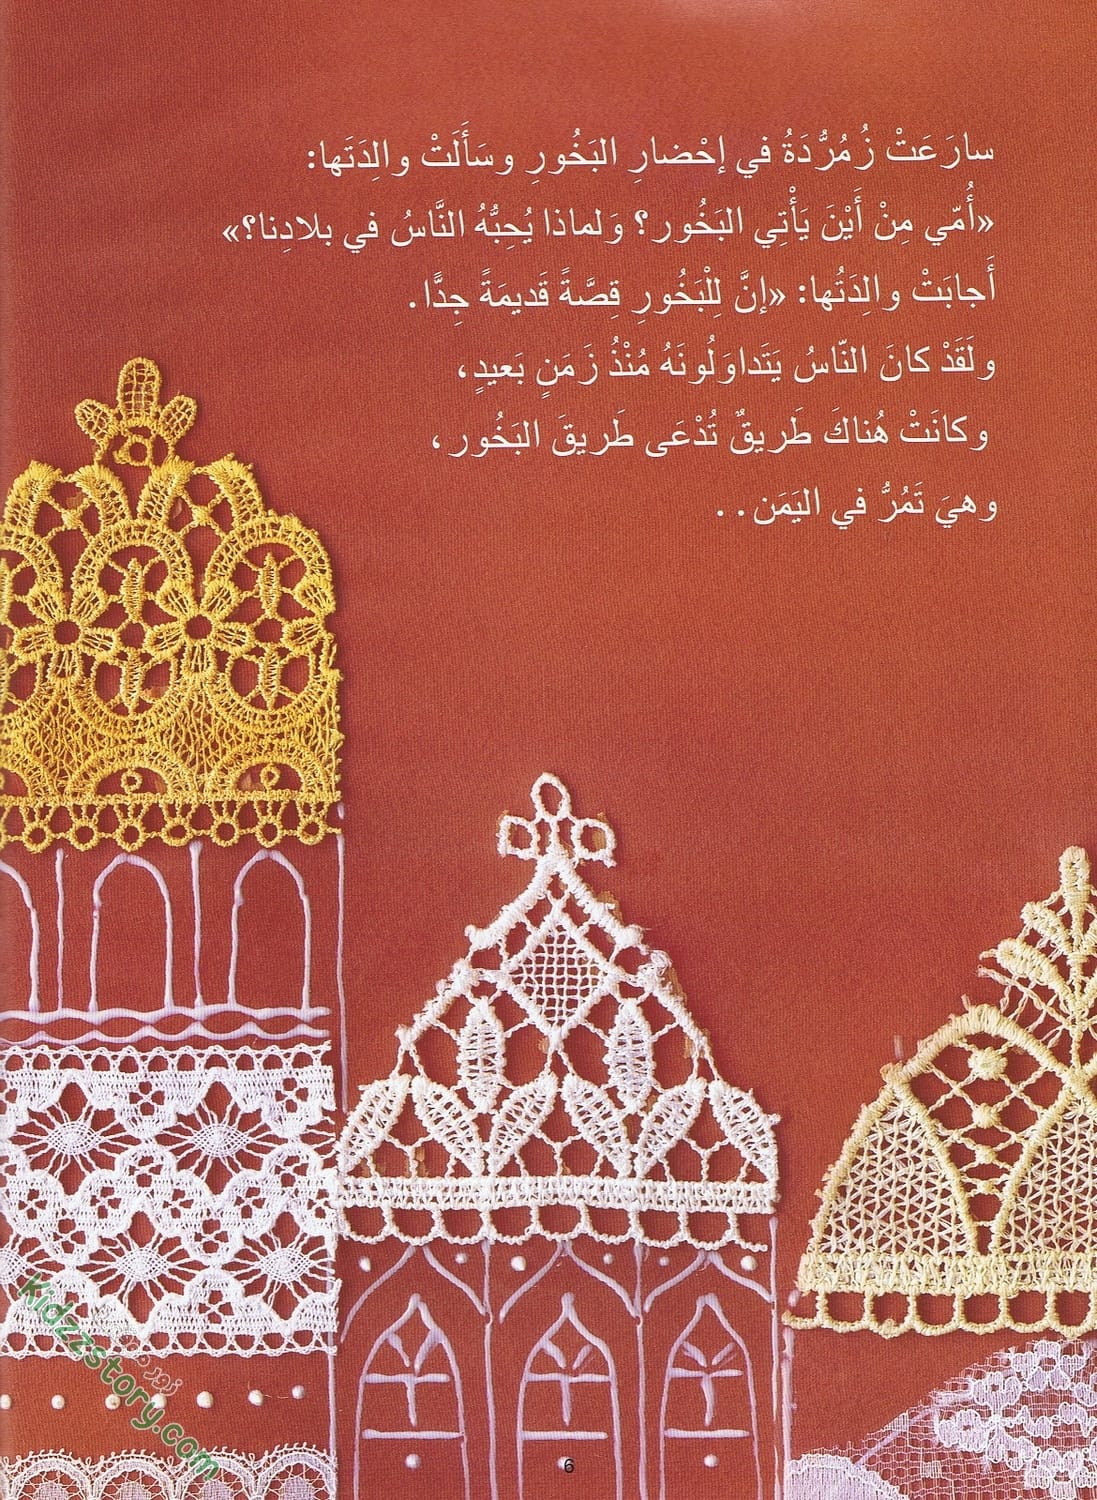 سارَعَتْ زُمُرُّدَةُ في إحْضارِ البَخُورِ وسَأَلَتْ والِدَتَها:
«أُمّي مِنْ أَيْنَ يَأْتِي البَخُور؟ وَلماذا يُحِبُّهُ النَّاسُ في بلادِنا؟»
أَجابَتْ والِدَتُها: «إنَّ لِلْبَخُورِ قِصَّةً قَديمَةً جِدًّا.
ولَقَدْ كانَ النّاسُ يَتَداوَلُونَهُ مُنْذُ زَمَنٍ بَعيدٍ،
وكانَتْ هُناكَ طَريقٌ تُدْعَى طَريقَ البَخُور،
وهيَ تَمُرُّ في اليَمَن..
kidzzstory.com
6